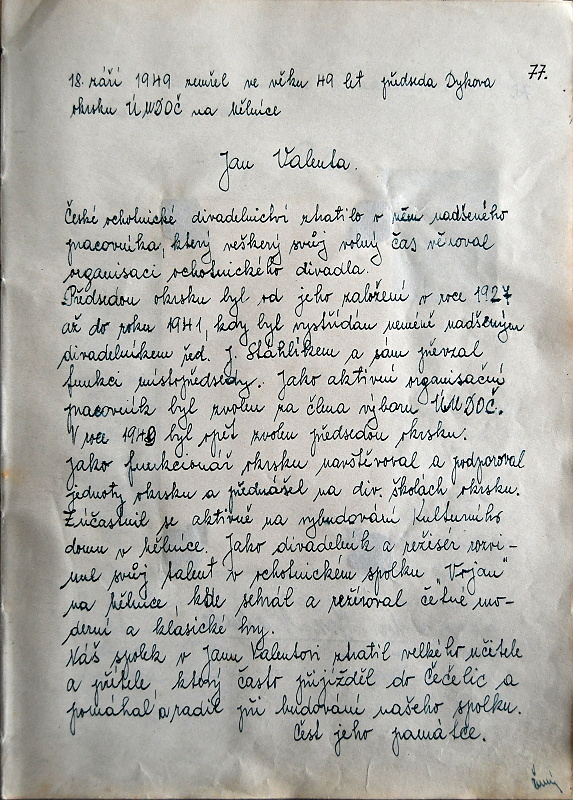 77.
18. září 1949 zemřel ve věku 49 let předseda Dykova
okrsku ÚMDOČ na Mělnice
Jan Valenta.
České ochotnické divadelnictví ztratilo v něm nadšeného
pracovníka, který veškerý svůj volný čas věnoval
organisaci ochotnického divadla.
Předsedou okrsku byl od jeho založení v roce 1927
až do roku 1941, kdy byl vystřídán neméně nadšeným
divadelníkem řed. J. Stáhlíkem a sám převzal
funkci místopředsedy. Jako aktivní organisační
pracovník byl zvolen za člena výboru ÚMDOČ.
V roce 1949 byl opět zvolen předsedou okrsku.
Jako funkcionář okrsku navštěvoval a podporoval
jednoty okrsku a přednášel na div. školách okrsku.
Zúčastnil se aktivně na vybudování Kulturního
domu v Mělnice. Jako divadelník a režisér rozvi-
nul svůj talent v ochotnickém spolku „Vojan"
na Mělnice, kde sehrál a režíroval četné mo-
derní a klasické hry.
Náš spolek v Janu Valentovi ztratil velkého učitele
a přítele, který často přijížděl do Čečelic a
pomáhal a radil při budování našeho spolku.
Čest jeho památce.